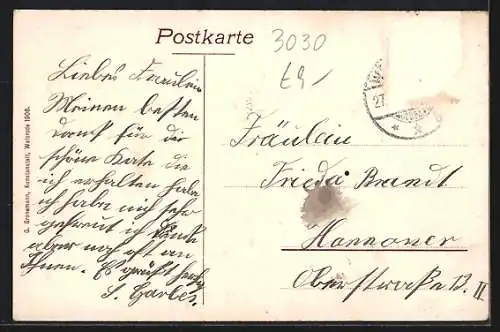 Postkarte
3030
E9,-
Liebes Fräulein
Meinen besten
Dank für die
schöne Karte die
ich erhalten habe
ich habe mich sehr
gefreut ich
aber noch oft an
Ihnen. Es grüßt
S. Garbes.
Fräulein
Frieda Brandt
Hannover
Oberstraße 13. II
G. Grotemann, Kunstanstalt, Walsrode 1906.
27